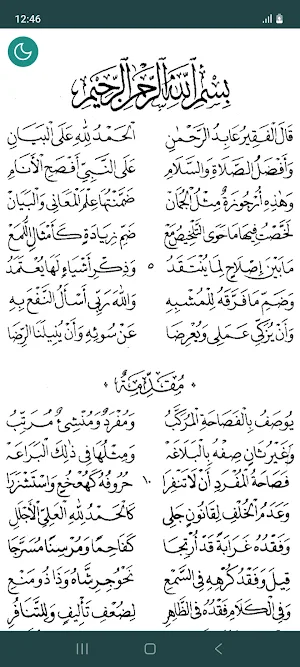 12:46
بِسْمِ اللَّهِ الرَّحْمَٰنِ الرَّحِيمِ
قَالَ الْفَقِيرُ عَابِدُ الرَّحْمٰنِ الْحَمْدُ لِلَّهِ عَلَى الْبَيَانِ
وَأَفْضَلُ الصَّلَاةِ وَالسَّلَامِ عَلَى النَّبِيِّ أَفْصَحِ الْأَنَامِ
وَهٰذِهِ أُرْجُوزَةٌ مِثْلُ الْجُمَانِ ضَمَّنْتُهَا عِلْمَ الْمَعَانِي وَالْبَيَانِ
لَخَّصْتُ فِيهَا مَا حَوَى التَّلْخِيصُ مَعْ ضَمِّ زِيَادَةٍ كَأَمْثَالِ اللُّمَعْ
مَا بَيْنَ إِصْلَاحٍ لِمَا يُنْتَقَدُ ٥ وَذِكْرِ أَشْيَاءَ لَهَا يُعْتَمَدُ
وَضَمِّ مَا فَرَّقَهُ لِلْمُشْبِهِ وَاللَّهَ رَبِّي أَسْأَلُ النَّفْعَ بِهِ
وَأَنْ يُزَكِّي عَمَلِي وَيُعْرِضَا عَنْ سُوئِهِ وَأَنْ يُنِيلَنَا الرِّضَا
مُقَدِّمَةٌ
يُوصَفُ بِالْفَصَاحَةِ الْمُرَكَّبُ وَمُفْرَدٌ وَمُنْشِئٌ مُرَتِّبُ
وَغَيْرُ ثَانٍ صِفْهُ بِالْبَلَاغَهْ وَمِثْلُهَا فِي ذٰلِكَ الْبَرَاعَهْ
فَصَاحَةُ الْمُفْرَدِ أَنْ لَا تَنْفِرَا ١٠ حُرُوفُهُ كَهُعْخُعٍ وَاسْتَشْزَرَا
وَعَدَمُ الْخُلْفِ لِقَانُونٍ جَلِي كَالْحَمْدُ لِلَّهِ الْعَلِيِّ الْأَجْلَلِ
وَفَقْدُهُ غَرَابَةً قَدْ أُرْتِجَا كَفَاحِمًا وَمَرْسِنًا مُسَرَّجَا
قِيلَ وَفَقْدُ كُرْهِهِ فِي السَّمْعِ نَحْوُ جِرِشَّاهُ وَذَا ذُو مَنْعِ
وَفِي الْكَلَامِ فَقْدُهُ فِي الظَّاهِرِ لِضُعْفِ تَأْلِيفٍ وَلِلتَّنَافُرِ